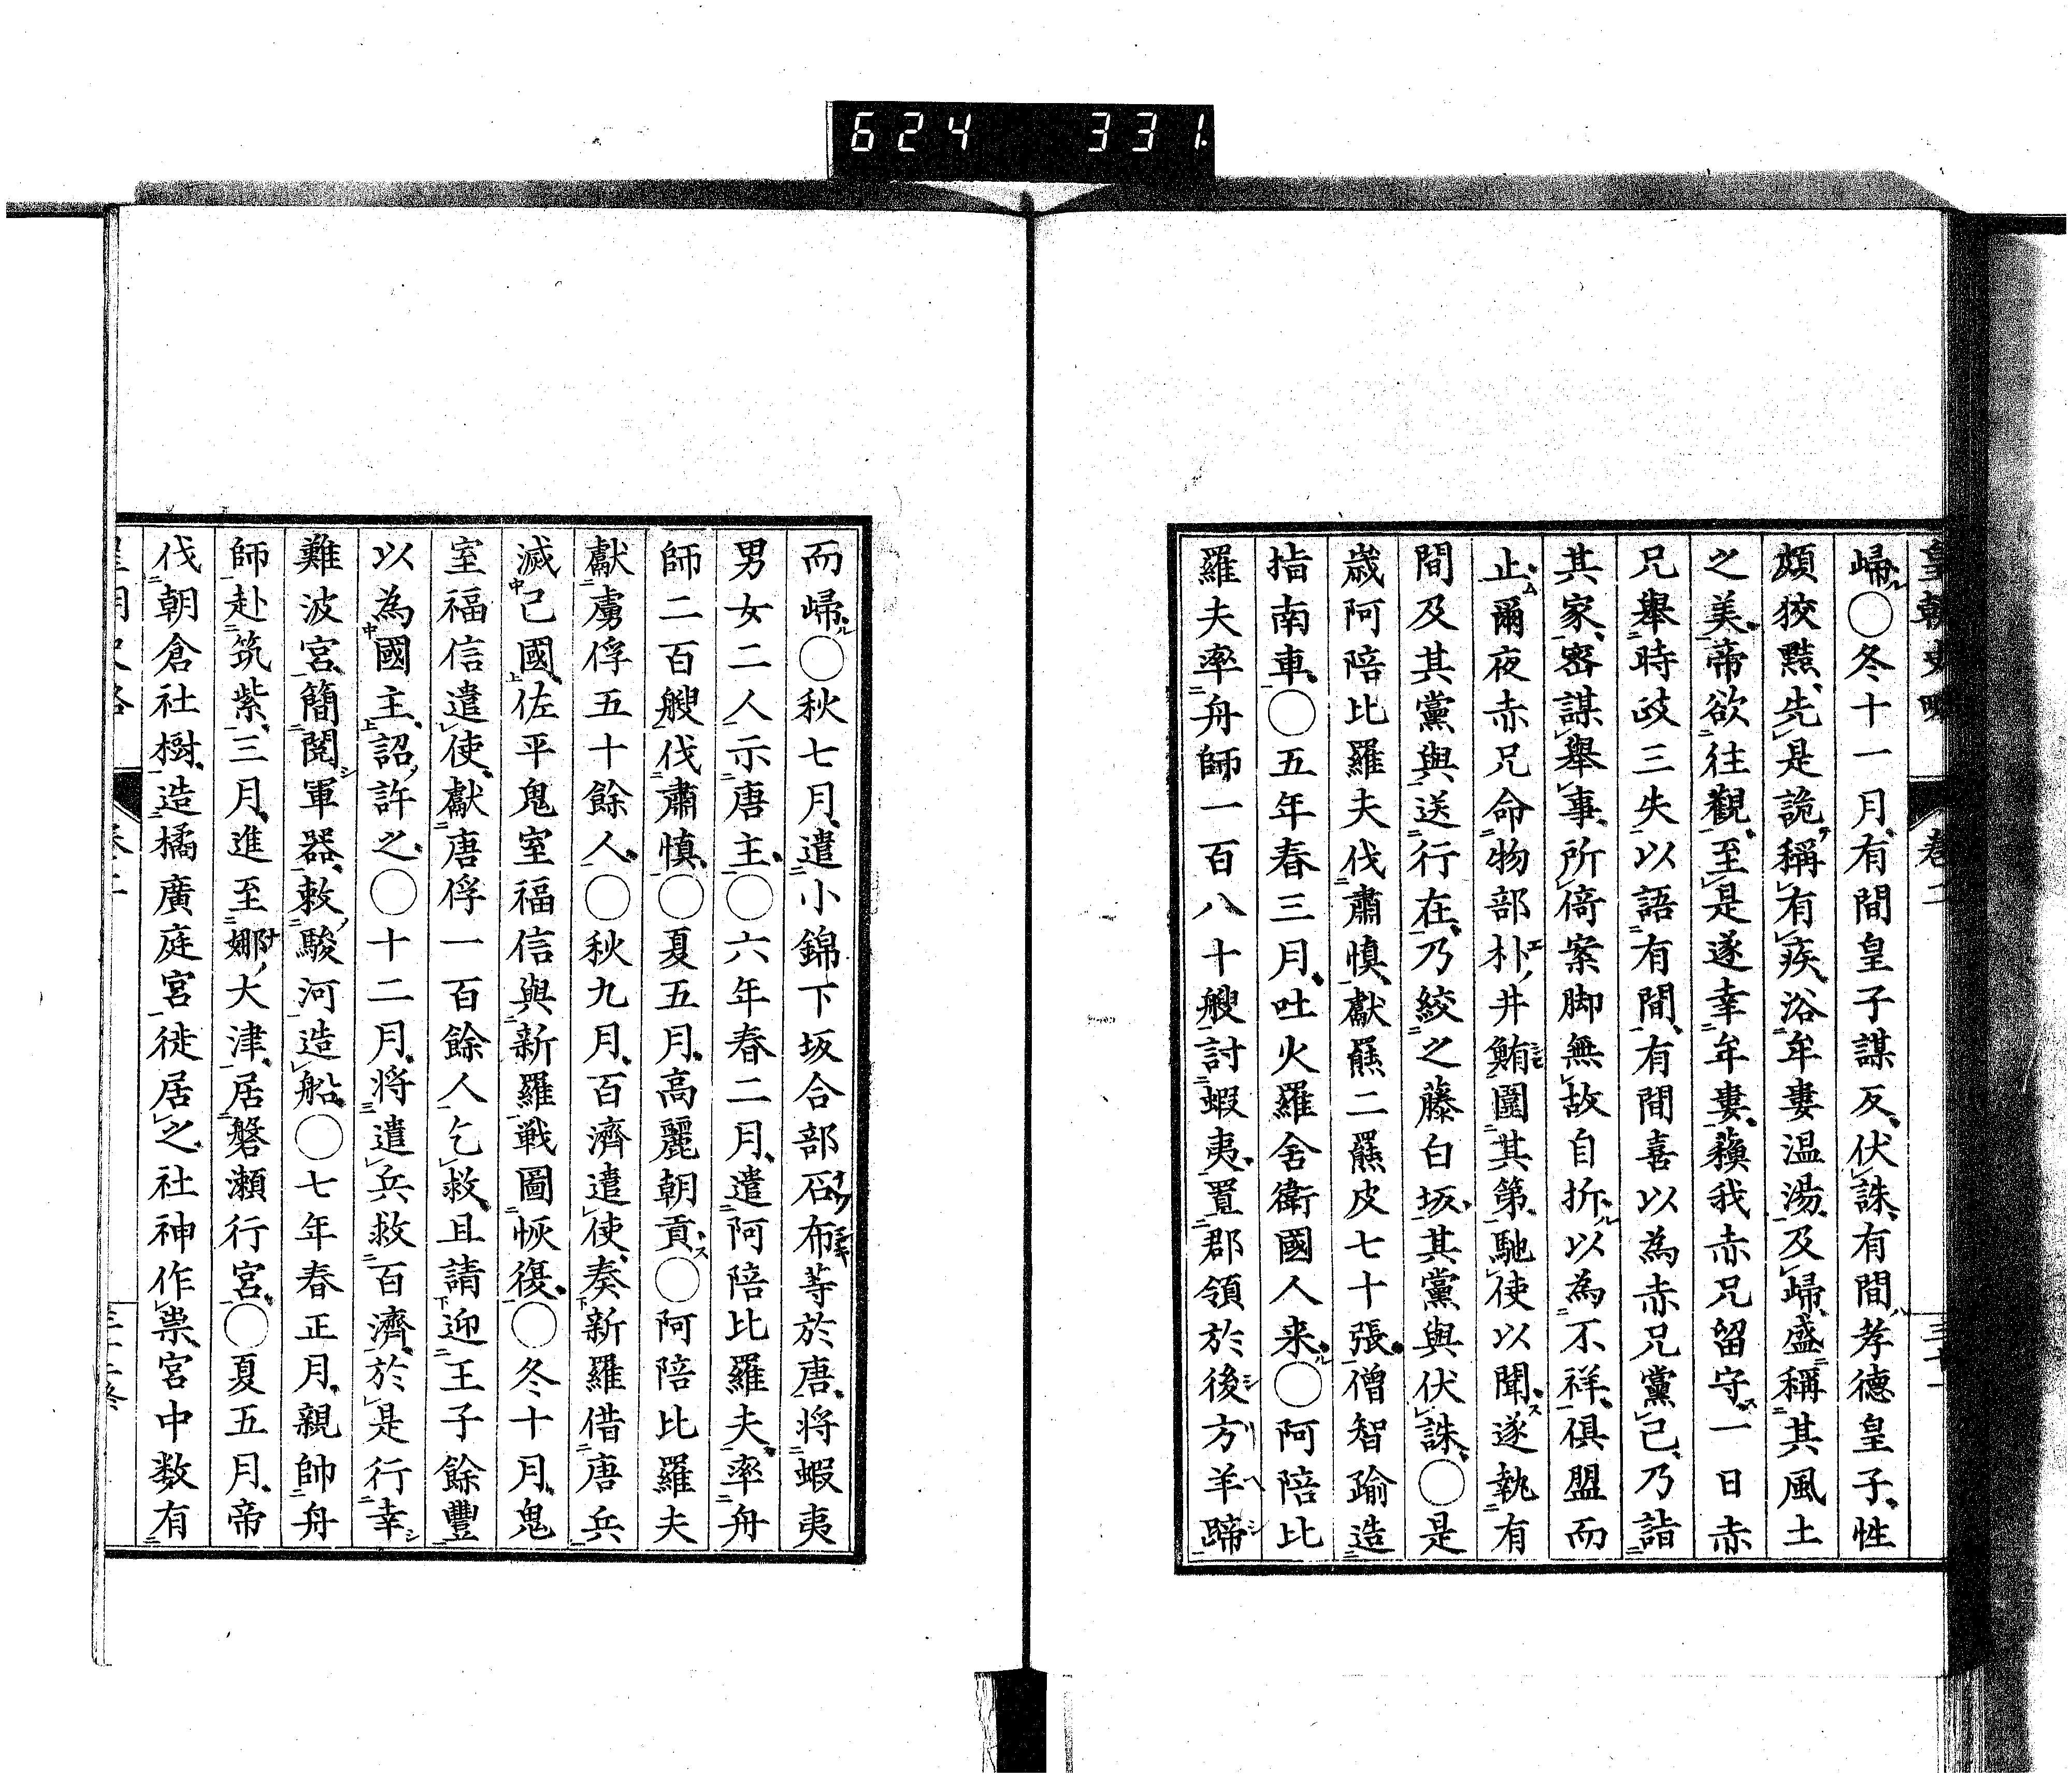 624 331
皇朝史略 巻二 三十一
歸○冬十一月有間皇子謀反伏誅有間孝德皇子性
頗狡黠先是詭稱有疾浴牟婁温湯及歸盛稱其風土
之美帝欲往觀至是遂幸牟婁蘓我赤兄留守一日赤
兄舉時政三失以語有間有間喜以為赤兄黨己乃詣
其家密謀舉事所倚案脚無故自折以為不祥俱盟而
止爾夜赤兄命物部朴井鮪圍其第馳使以聞遂執有
間及其黨與送行在乃絞之藤白坂其黨與伏誅○是
歳阿陪比羅夫伐肅慎獻羆二羆皮七十張僧智踰造
指南車○五年春三月吐火羅舍衛國人来○阿陪比
羅夫率舟師一百八十艘討蝦夷置郡領於後方羊蹄
而歸○秋七月遣小錦下坂合部石布等於唐将蝦夷
男女二人示唐主○六年春二月遣阿陪比羅夫率舟
師二百艘伐肅慎○夏五月高麗朝貢○阿陪比羅夫
獻虜俘五十餘人○秋九月百濟遣使奏新羅借唐兵
滅己國佐平鬼室福信與新羅戦圖恢復○冬十月鬼
室福信遣使獻唐俘一百餘人乞救且請迎王子餘豐
以為國主詔許之○十二月将遣兵救百濟於是行幸
難波宮簡閲軍器敕駿河造船○七年春正月親帥舟
師赴筑紫三月進至娜大津居磐瀬行宮○夏五月帝
伐朝倉社樹造橘廣庭宮徙居之社神作祟宮中数有